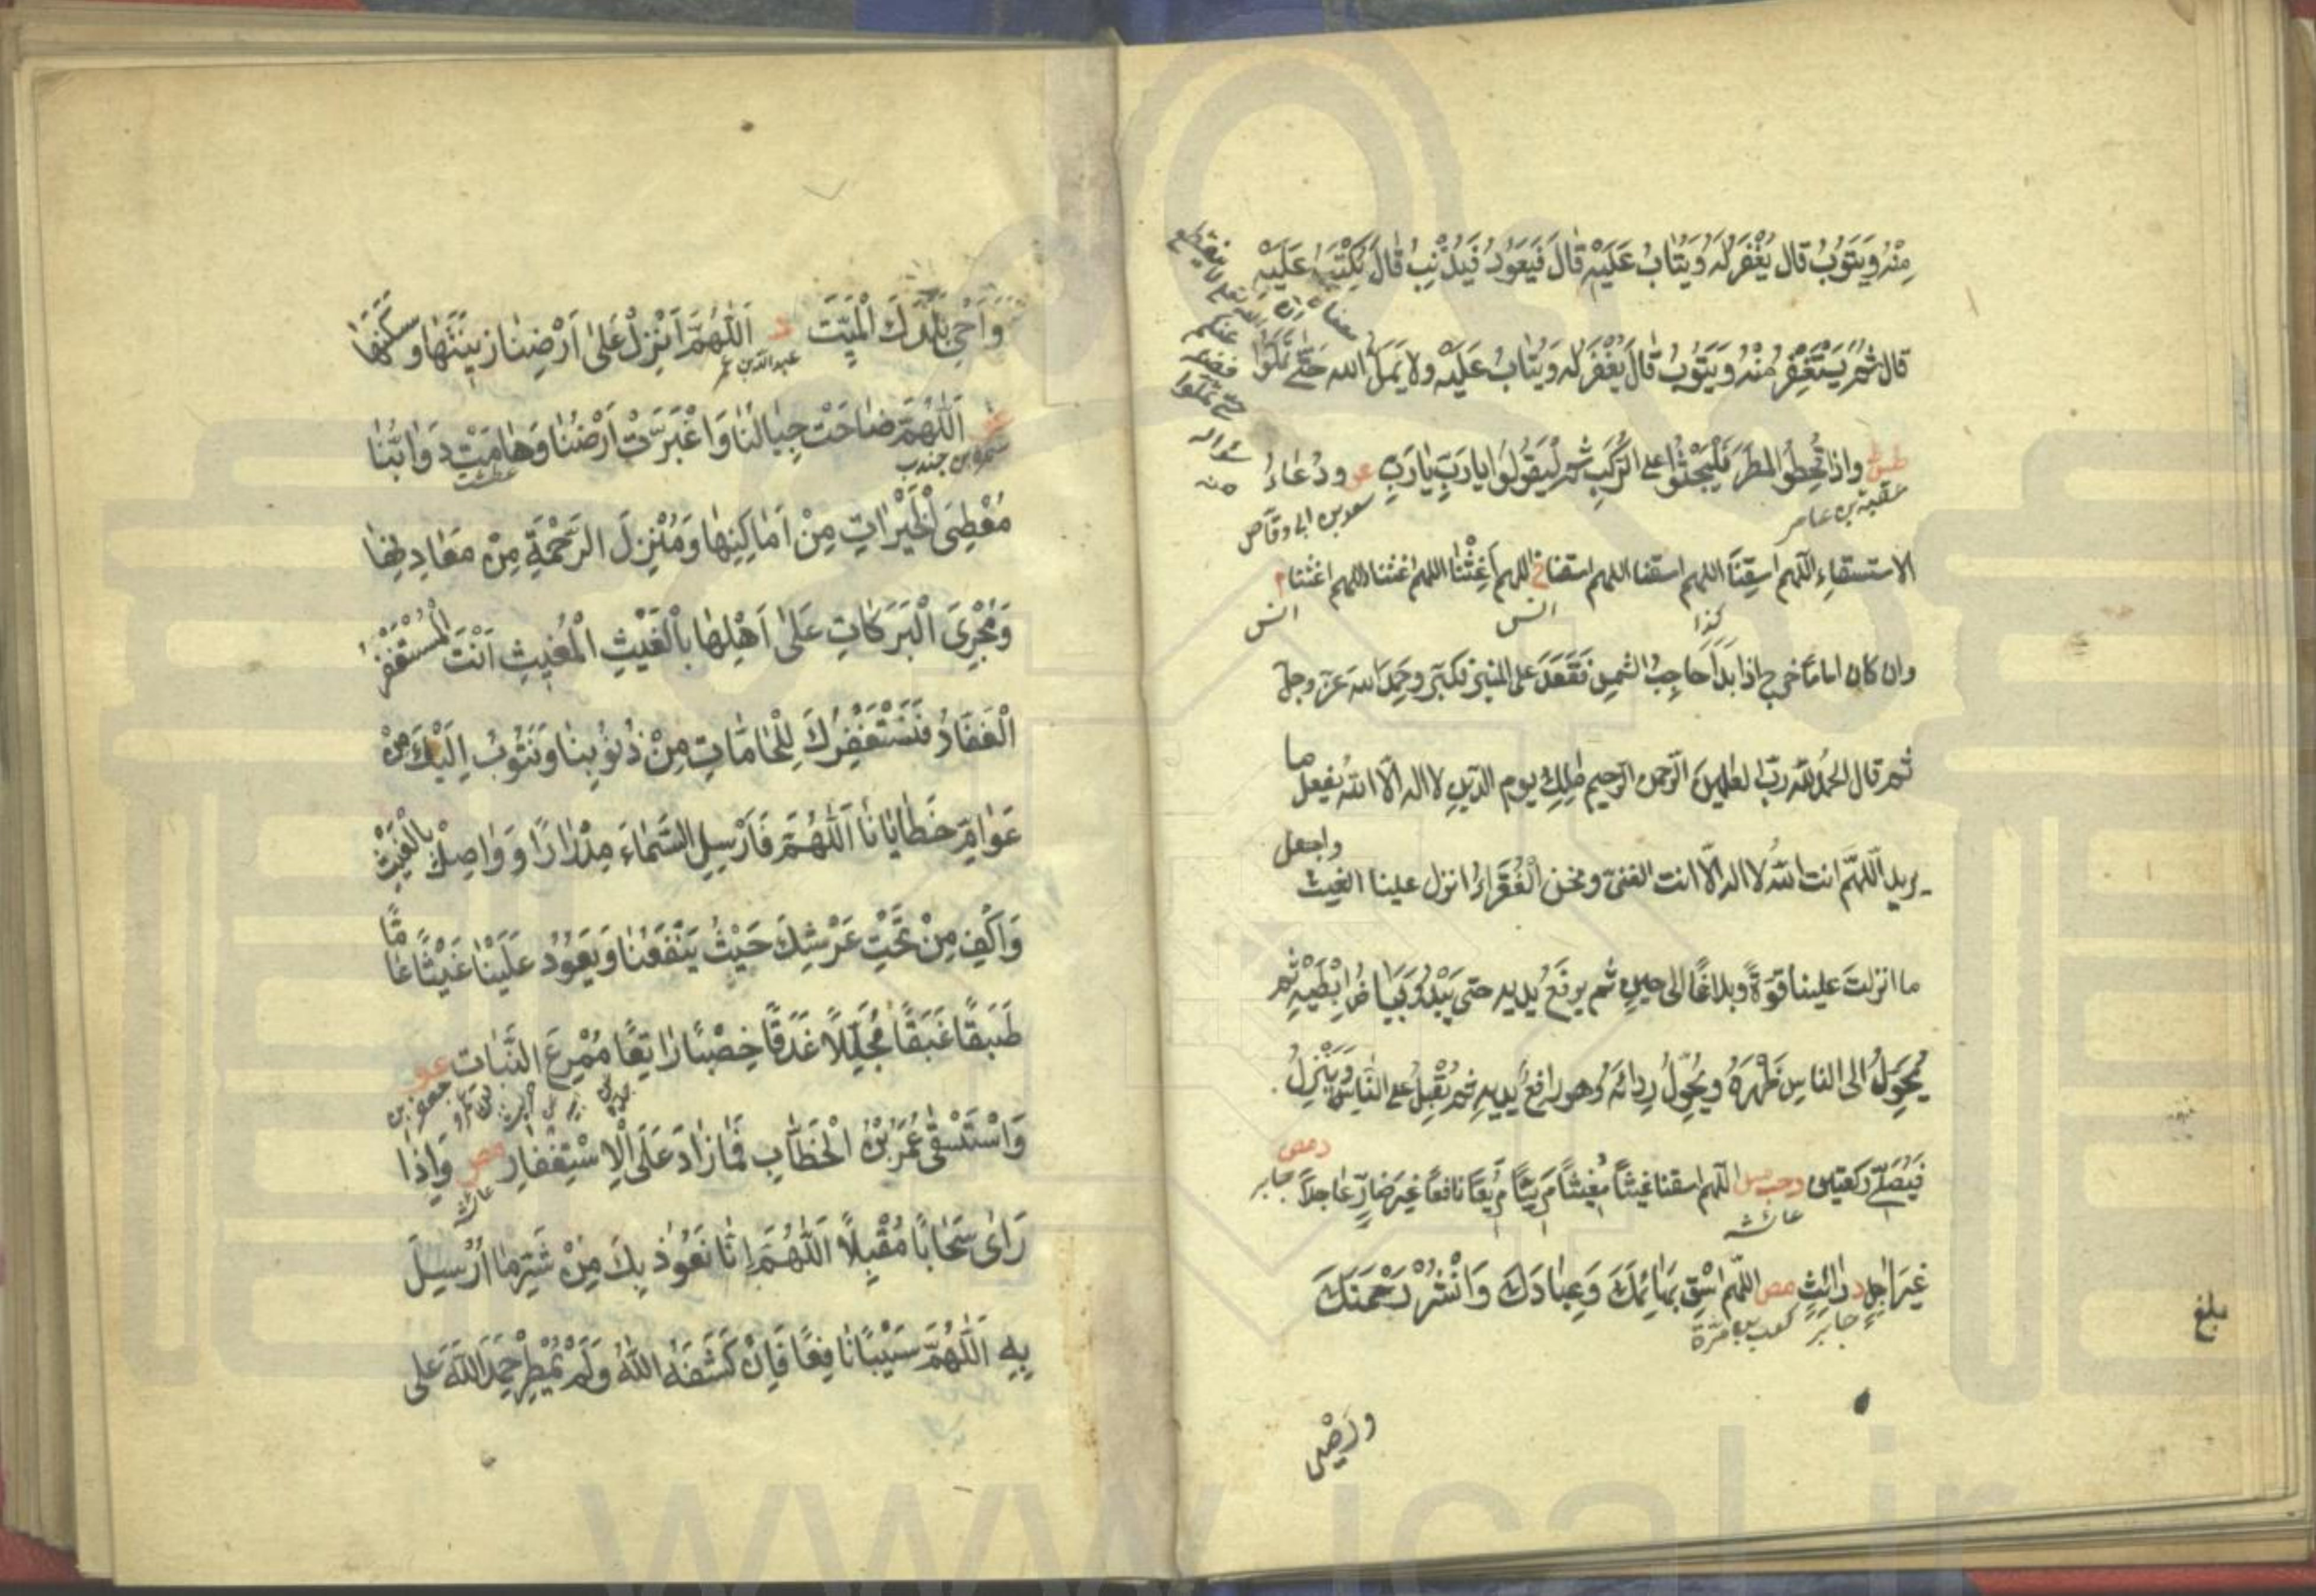 مِنْهُ وَيَتُوبُ قال يُغْفَرُ لَهُ وَيُتابُ عَلَيْهِ قالَ فَيَعُودُ فَيُذْنِبُ قالَ يُكْتَبُ عَلَيْهِ
قال ثُمَّ يَسْتَغْفِرُ مِنْهُ وَيَتُوبُ قالَ يُغْفَرُ لَهُ وَيُتابُ عَلَيْهِ ولا يَمَلُّ الله حَتّى تَمَلُّوا
طس واذا قُحِطُوا المَطَرَ فَلْيَجْثُوا على الرُّكَبِ ثم لْيَقُولُوا يا رَبِّ يا رَبِّ عو ودُعاءُ
عقبة بن عامر
سعد بن ابى وقاص
الاستسقاءِ اللّهم اسقِنَا اللهم اسقنا اللهم اسقنا خ اللهم أغِثْنا اللهم اغثنا اللهم اغثنا م
كذا
انس
انس
وان كان اماما خرج اذا بَدَا حَاجِبُ الشمسِ فَقَعَدَ على المنبر فكبّر وحَمِدَ الله عزّ وجلّ
ثم قال الحمدُ للّه ربّ العلمين الرّحمن الرّحيم ملك يوم الدّين لا اله الّا اللّهُ يفعل ما
يريد اللّهمّ انت اللّهُ لا اله الّا انت الغنىّ ونحن الْفُقَرَاءُ انزل علينا الغيث واجعل
ما انزلتَ علينا قوّةً وبلاغًا الى حينٍ ثم يرفَعُ يديه حتى يَبْدُوَ بَيَاضُ اِبْطَيْهِ ثم
يُحَوِّلُ الى الناسِ ظَهْرَهُ ويُحَوِّلُ رِدائَهُ وهو رافعٌ يديه ثم يُقْبِلُ على النّاس وَيَنْزِلُ
فَيُصَلّي ركعتين د حب مس اللّهم اسقنا غيثًا مُغيثًا مَريئًا مَريعًا نافعًا غيرَ ضارٍّ عاجلاً
د مص
جابر
عائشة
غيرَ اجِلٍ د رائثٍ مص اللّهم اسْقِ بَهَائِمَكَ وَعِبَادَكَ وَانْشُرْ رَحْمَتَكَ
جابر
كعب بن مرّة
بلغ
وَاَحْىِ بَلَدَكَ الْمَيِّتَ د اَللّهُمَّ اَنْزِلْ عَلى اَرْضِنا زينَتَها وَسَكَنَها
عبد الله بن عمر
عو اَللّهُمَّ ضاحَتْ جِبالُنا وَاغْبَرَّتْ اَرْضُنا وَهامَتْ دَوابُّنا
سمرة بن جندب
عطشت
مُعْطِىَ الْخَيْراتِ مِنْ اَماكِنِها وَمُنْزِلَ الرَّحْمَةِ مِنْ مَعادِنِها
وَمُجْرِىَ الْبَرَكاتِ عَلى اَهْلِها بِالْغَيْثِ الْمُغيثِ اَنْتَ الْمُسْتَغْفَرُ
الْغَفّارُ فَنَسْتَغْفِرُكَ لِلْحامّاتِ مِنْ ذُنُوبِنا وَنَتُوبُ اِلَيْكَ مِنْ
عَوامِّ خَطايانا اَللّهُمَّ فَاَرْسِلِ السَّماءَ مِدْرارًا وَواصِلْ بِالْغَيْثِ
وَاكْفِ مِنْ تَحْتِ عَرْشِكَ حَيْثُ يَنْفَعُنا وَيَعُودُ عَلَيْنا غَيْثًا عامًّا
طَبَقًا غَبَقًا مُجَلِّلاً غَدَقًا خِصْبًا راتِعًا مُمْرِعَ النَّباتِ عو
وَاسْتَسْقى عُمَرُ بْنُ الْخَطّابِ فَما زادَ عَلَى الْاِسْتِغْفارِ مص وَاِذا
عائشة
رَاى سَحابًا مُقْبِلًا اَللّهُمَّ اِنّا نَعُوذُ بِكَ مِنْ شَرِّ ما اُرْسِلَ
بِهِ اَللّهُمَّ سَيْبًا نافِعًا فَاِنْ كَشَفَهُ اللّهُ وَلَمْ يُمْطِرْ حَمِدَ اللّهَ عَلى
www.ical.ir